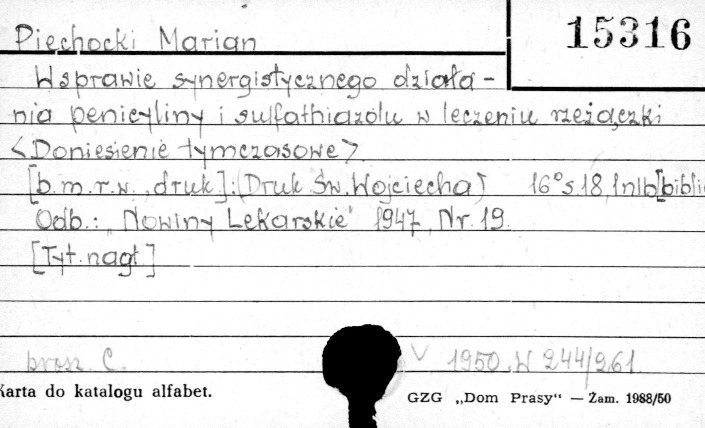 15316
Piechocki Marian
W sprawie synergistycznego działa-
nia penicyliny i sulfathiazolu w leczeniu rzeżączki
<Doniesienie tymczasowe>
[b.m.r.w., druk]:(Druk Św. Wojciecha) 16° s.18, 1 nlb [biblio
Odb.: "Nowiny Lekarskie" 1947, Nr. 19.
[Tyt. nagł.]
brosz. C. V 1950.W 244/961.
Karta do katalogu alfabet.
GZG „Dom Prasy“ — Zam. 1988/50